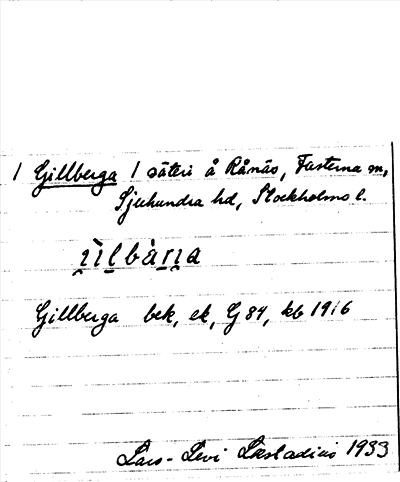 1 Gillberga 1 säteri å Rånäs, Fasterna sn,
Sjuhundra hd, Stockholms l.
i̯ìl̠bàr̠i̯a
Gillberga bek, ek, G 84, kb 1916
Lars-Levi Læstadius 1933